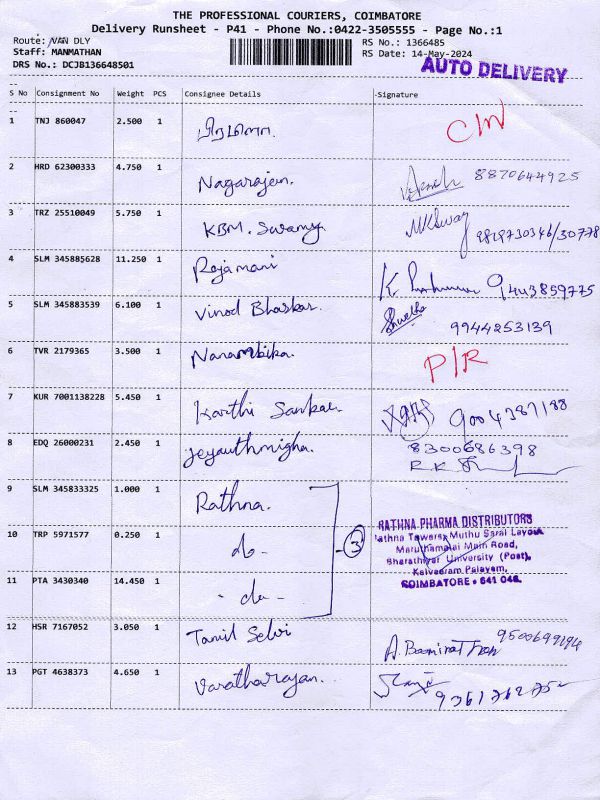 THE PROFESSIONAL COURIERS, COIMBATORE
Delivery Runsheet - P41 - Phone No.:0422-3505555 - Page No.:1
Route: VAN DLY RS No.: 1366485
Staff: MANMATHAN RS Date: 14-May-2024
DRS No.: DCJB136648501 AUTO DELIVERY
S No Consignment No Weight PCS Consignee Details Signature
1 TNJ 860047 2.500 1
2 HRD 62300333 4.750 1 Nagarajan. 8870644925
3 TRZ 25510049 5.750 1 KBM. Swamy
4 SLM 345885628 11.250 1 Rajamani K 9443859775
5 SLM 345883539 6.100 1 Vinod Bhaskar. Shwetha 9944253139
6 TVR 2179365 3.500 1 Nanambika. P/R
7 KUR 7001138228 5.450 1 Karthi Sankar 9004387188
8 EDQ 26000231 2.450 1 8300686398
R K
9 SLM 345833325 1.000 1 Rathna.
10 TRP 5971577 0.250 1 - do - 3
11 PTA 3430340 14.450 1 - do -
RATHNA PHARMA DISTRIBUTORS
Rathna Towers, Muthu Sarai Layout
Maruthamalai Main Road,
Bharathiyar University (Post),
Kalveeram Palayam,
COIMBATORE - 641 046.
12 HSR 7167052 3.050 1 Tamil Selvi A.
13 PGT 4638373 4.650 1 Varatharajan.